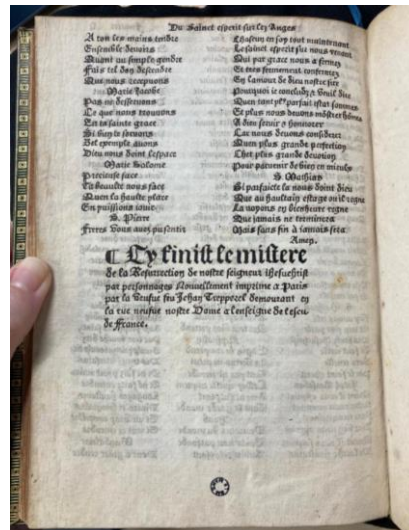 Du Sainct esperit sur les Anges
A ton les mains tendre
Ensemble devoirs
Quant au simple gendre
Fais tel des descendre
Que nous recepvons
Marie Jacobe
Pas ne desservons
Ce que nous trouvons
Est ta saincte grace
Si bien le scavons
Bel exemple avons
Dieu nous doint lespace
Marie Salome
Precieuse face
Ta beaulte nous face
Quen la haulte place
En puissions jouir
S. Pierre
Freres vous avez presentir
Chascun en soy tout maintenant
Le sainct esperit sur nous venant
Qui par grace nous a fermez
Et tres fermement confermez
En lamour de dieu nostre sire
Pourquoy je concludz & vueil dire
Quen tant plus parfait estat sommes
Et plus nous devons monstrer hommes
A dieu servir & honnorer
Car nous devons considerer
Quen plus grande perfection
Chet plus grande devotion
Pour parvenir de bien en mieulx
S. Mathias
Si parfaicte la nous doint dieu
Que au haultain estage ou il regne
La voyons en bienheure regne
Que jamais ne terminera
Mais sans fin a jamais sera
Amen.
¶ Cy finist le mistere
de la Resurrection de nostre seigneur ihesuchrist
par personnages Nouvellement imprime a Paris
par la Veufue feu Jehan Trepperel demourant en
la rue neufue nostre Dame a lenseigne de lescu
de France.